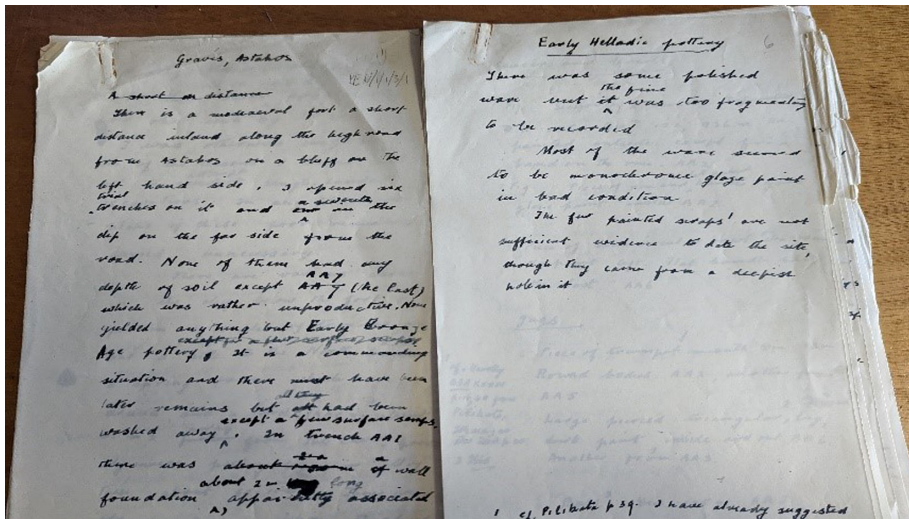 Gravis, Astakos
A short on distance
There is a mediaeval fort a short
distance inland along the high road
from Astakos on a bluff on the
left hand side. I opened six
trial
trenches on it and one in the
a seventh
dip on the far side from the
road. None of them had any
AA7
depth of soil except AA7 (the last)
which was rather unproductive. None
yielded anything but Early Bronze
except for a few surface scraps
Age pottery, It is a commanding
situation and there must have been
all they
later remains but all had been
except a few surface scraps.
washed away. In trench AA1
there was about of wall
about 2m long
foundation apparently associated
6
Early Helladic pottery
There was some polished
the fine
ware but it was too fragmentary
to be recorded
Most of the ware seemed
to be monochrome glaze paint
in bad condition.
The few painted scraps¹ are not
sufficient evidence to date the site,
though they came from a deepish
hole in it
Jugs
Round bodied AA2,
AA5
1 cf. Pilikata p 39. I have already suggested